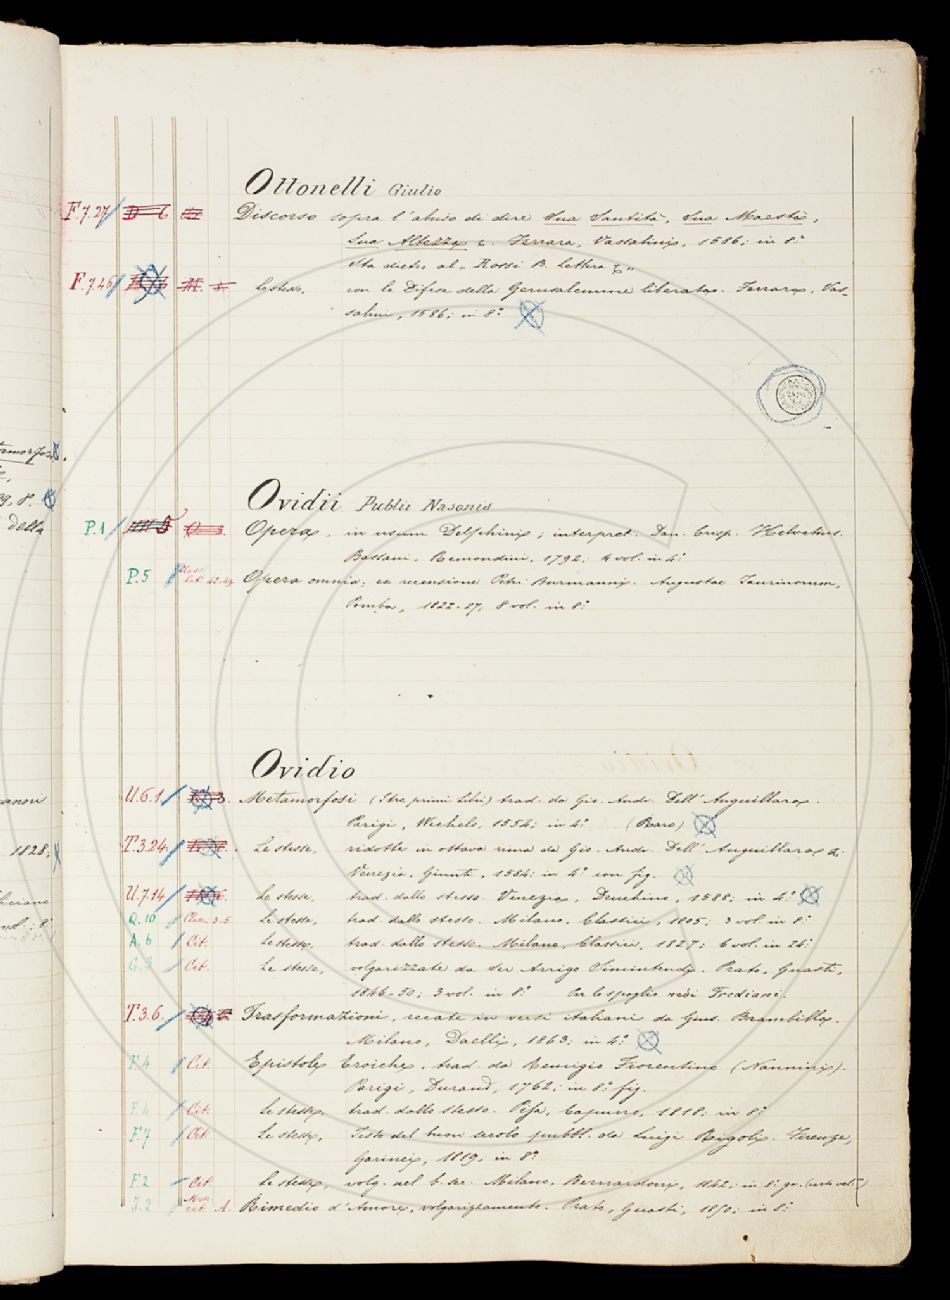 Ottonelli Giulio
F.7.27 D 6 Discorso sopra l'abuso di dire Sua Santità, Sua Maestà,
Sua Altezza &. Ferrara, Vassalini, 1586; in 8.º
Sta dietro al „ Rossi B. Lettera
F.7.46 Lo stesso, con le Difese della Gerusalemme liberata. Ferrara, Vas-
salini, 1586; in 8.º
Ovidii Publii Nasonis
P.1 Opera, in usum Delphini; interpret. Dan. Crisp. Helvetius.
Bassani, Remondini, 1792; 4 vol. in 4.º
P.5 Opera omnia, ex recensione Petri Burmanni. Augustae Taurinorum,
Pomba, 1822-27, 8 vol. in 8.º
Ovidio
U.6.1 Metamorfosi (I tre primi Libri) trad. da Gio. Andr. Dell'Anguillara.
Parigi, Wechelo, 1554; in 4.º (Raro)
T.3.24. Le stesse, ridotte in ottava rima da Gio. Andr. Dell'Anguillara &.
Venezia, Giunti, 1584; in 4.º con fig.
U.7.14 Le stesse, trad. dallo stesso. Venezia, Deuchino, 1588; in 4.º
Q.10 Class. 3-5 Le stesse, trad. dallo stesso. Milano, Classici, 1805; 3 vol. in 8.º
A.6 Cit. Le stesse, trad. dallo stesso. Milano, Classici, 1827; 6 vol. in 24.º
G.3 Cit. Le stesse, volgarizzate da Ser Arrigo Simintendi. Prato, Guasti,
1846-50; 3 vol. in 8.º Per lo spoglio vedi Frediani.
T.3.6. Trasformazioni, recate in versi italiani da Gius. Brambilla.
Milano, Daelli, 1863; in 4.º
F.4 Cit. Epistole Eroiche, trad. da Remigio Fiorentino (Nannini).
Parigi, Durand, 1762; in 8.º fig.
F.4 Cit. Le stesse, trad. dallo stesso. Pisa, Capurro, 1818; in 8.º
F.7 Cit. Le stesse, Testo del buon secolo pubbl. da Luigi Rigoli. Firenze,
Garinei, 1819; in 8.º
F.2 Cit. Le stesse, volg. nel b. sec. Milano, Bernardoni, 1842; in 8.º gr. (carta vel.)
I.2 Rimedio d'Amore, volgarizzamento. Prato, Guasti, 1850; in 8.º
1828;
della